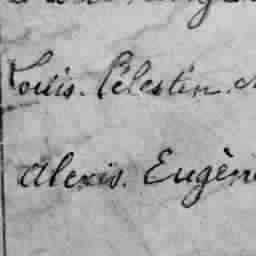 Louis. Célestin.
Alexis. Eugèn